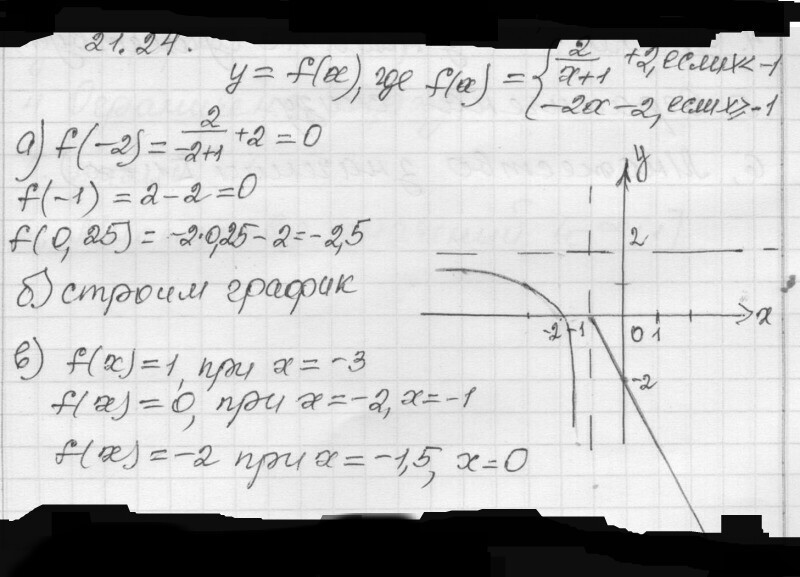 21.24.
y = f(x), где f(x) = { 2/(x+1) +2, если x < -1
-2x - 2, если x ≥ -1
а) f(-2) = 2/(-2+1) +2 = 0
f(-1) = 2 - 2 = 0
f(0,25) = -2·0,25 - 2 = -2,5
б) строим график
в) f(x) = 1, при x = -3
f(x) = 0, при x = -2, x = -1
f(x) = -2 при x = -1,5, x = 0
y
2
-2 -1 0 1 x
-2